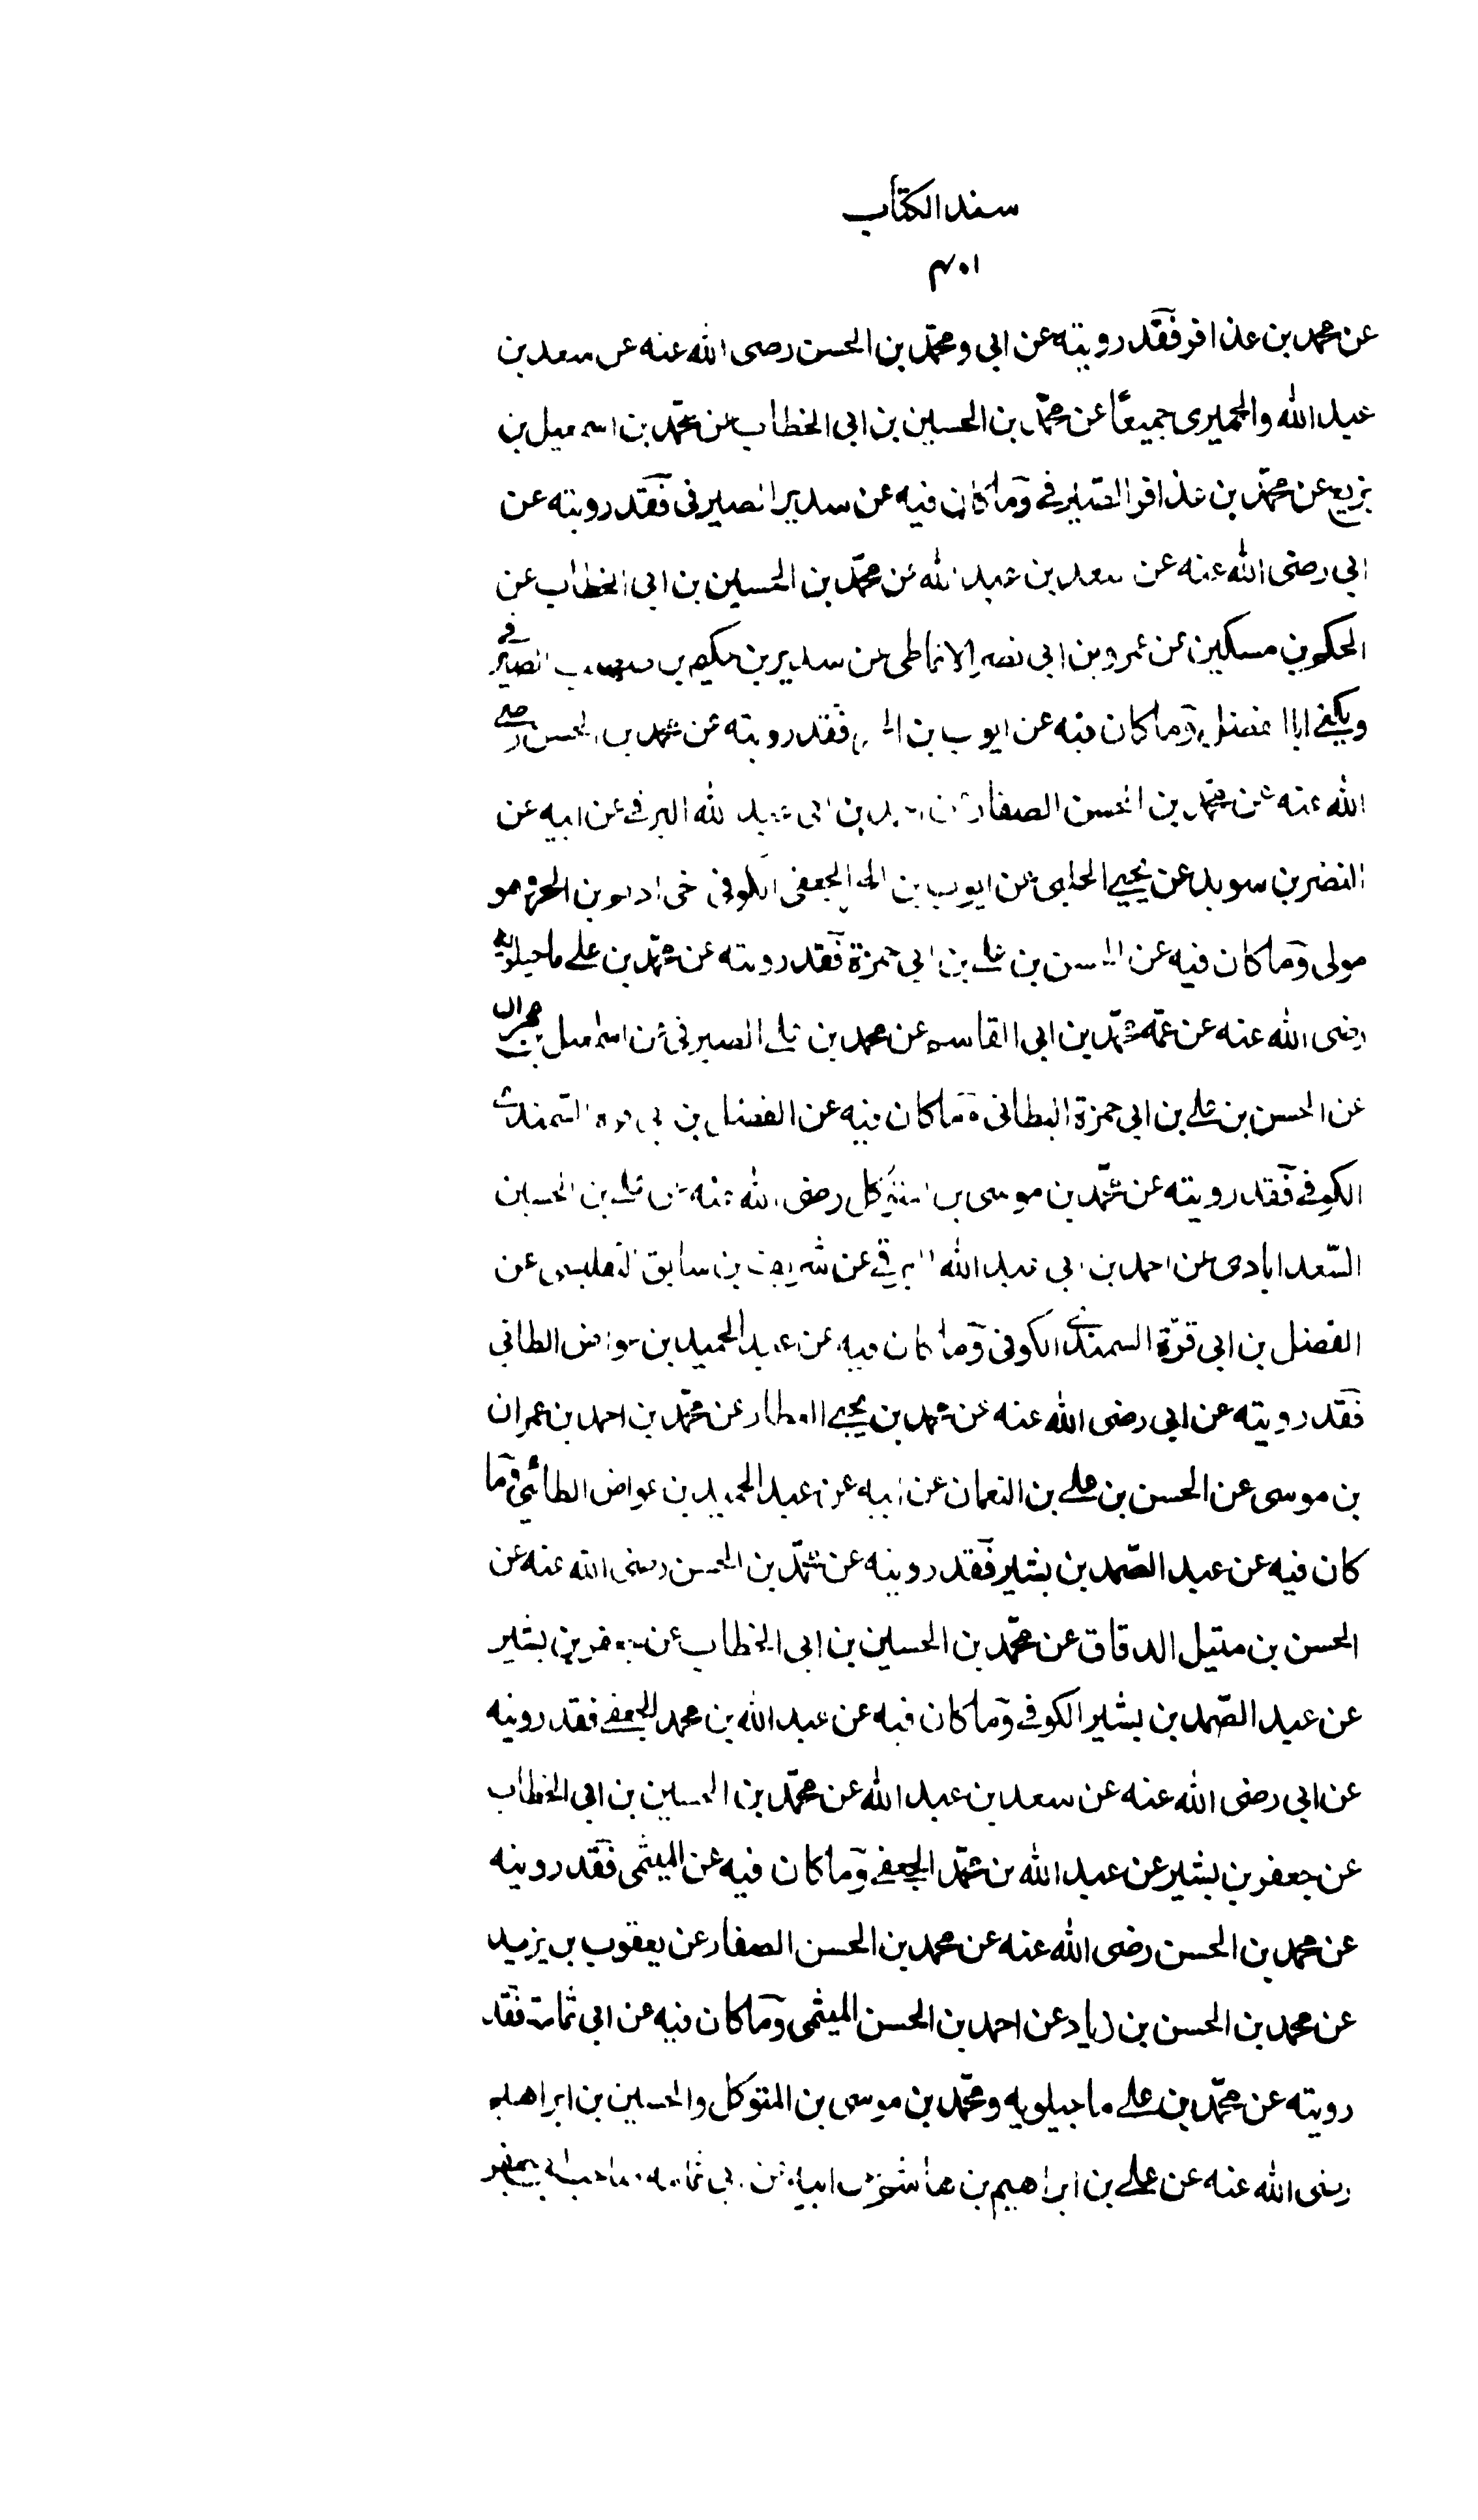 سند الكتاب
۴۰۱
عن محمد بن عذافر فقد رويته عن ابى ومحمّد بن الحسن رضى الله عنه عن سعد بن
عبد الله والحميرى جميعًا عن محمّد بن الحسين بن ابى الخطاب عن محمّد بن اسمعيل بن
بزيع عن محمّد بن عذافر الصّيرفي وما كان فيه عن سدير الصيرفى فقد رويته عن
ابى رضى الله عنه عن سعد بن عبد الله عن محمّد بن الحسين بن ابى الخطاب عن
الحكم بن مسكين عن عمرو بن ابى نصر الانماطى عن سدير بن حكيم بن صهيب الصيرفي
ويكنى ابا الفضل وما كان فيه عن ايوب بن الحر فقد رويته عن محمد بن الحسن رضى
الله عنه عن محمّد بن الحسن الصفار عن احمد بن ابى عبد الله البرقي عن ابيه عن
النضر بن سويد عن يحيى الحلبى عن ايوب بن الحر الجعفى الكوفى اخى اديم بن الحر وهو
مولى وما كان فيه عن الحسن بن على بن ابى حمزة فقد رويته عن محمّد بن على ماجيلويه
رضى الله عنه عن عمّه محمّد بن ابى القاسم عن محمد بن على الصيرفى عن اسمعيل بن مهران
عن الحسن بن على بن ابى حمزة البطائنى وما كان فيه عن الفضل بن ابى قرة السّمندى
الكوفي فقد رويته عن محمّد بن موسى بن المتوكل رضى الله عنه عن على بن الحسين
السّعدابادى عن احمد بن ابى عبد الله البرقي عن شريف بن سابق التفليسى عن
الفضل بن ابى قرّة السمندى الكوفى وما كان فيه عن عبد الحميد بن عواض الطائى
فقد رويته عن ابى رضى الله عنه عن محمد بن يحيى العطار عن محمّد بن احمد بن عمران
بن موسى عن الحسن بن على بن النعمان عن ابيه عن عبد الحميد بن عواض الطائي وما
كان فيه عن عبد الصّمد بن بشير فقد رويته عن محمّد بن الحسن رضى الله عنه عن
الحسن بن متيل الدقاق عن محمّد بن الحسين بن ابى الخطاب عن جعفر بن بشير
عن عبد الصّمد بن بشير الكوفي وما كان فيه عن عبد الله بن محمد الجعفي فقد رويته
عن ابى رضى الله عنه عن سعد بن عبد الله عن محمّد بن الحسين بن ابى الخطاب
عن جعفر بن بشير عن عبد الله بن محمّد الجعفي وما كان فيه عن الميثمى فقد رويته
عن محمد بن الحسن رضى الله عنه عن محمد بن الحسن الصفار عن يعقوب بن يزيد
عن محمد بن الحسن بن زياد عن احمد بن الحسن الميثمى وما كان فيه عن ابى ثمامة فقد
رويته عن محمّد بن على ماجيلويه ومحمّد بن موسى بن المتوكل والحسين بن ابراهيم
رضى الله عنه عن على بن ابراهيم بن هاشم عن ابيه عن ابى ثمامه صاحب ابى جعفر